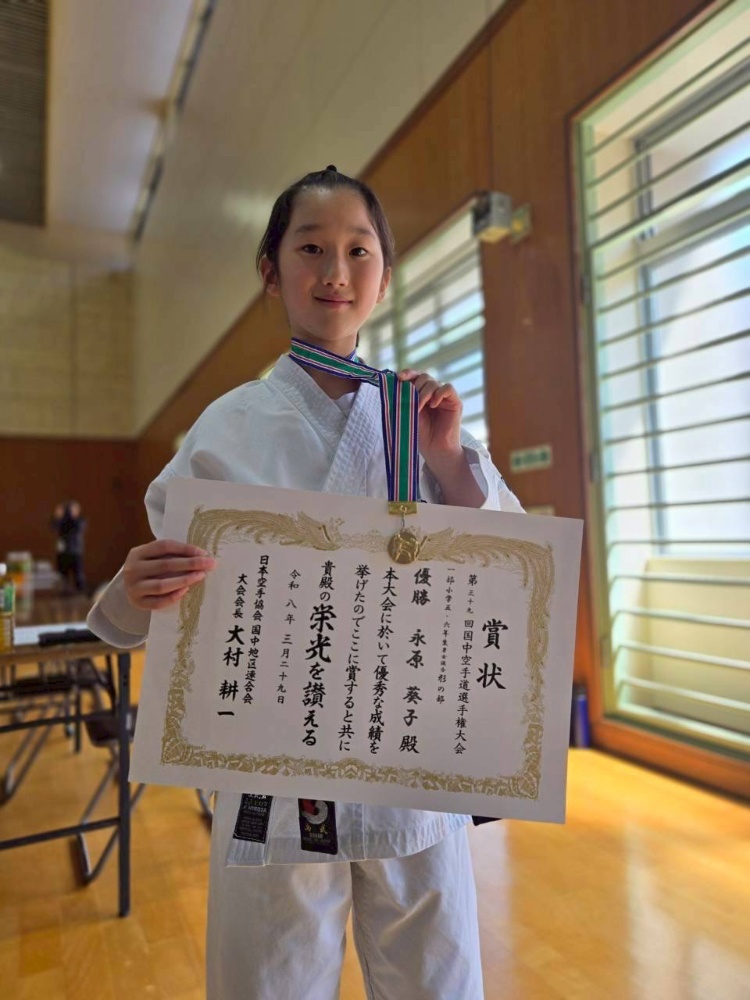 賞状
第三十九回国中空手道選手権大会
一部小学五・六年生男女混合形の部
優勝 永原 葵子 殿
本大会に於いて優秀な成績を
挙げたのでここに賞すると共に
貴殿の栄光を讃える
令和八年三月二十九日
日本空手協会国中地区連合会
大会会長 大村 耕一